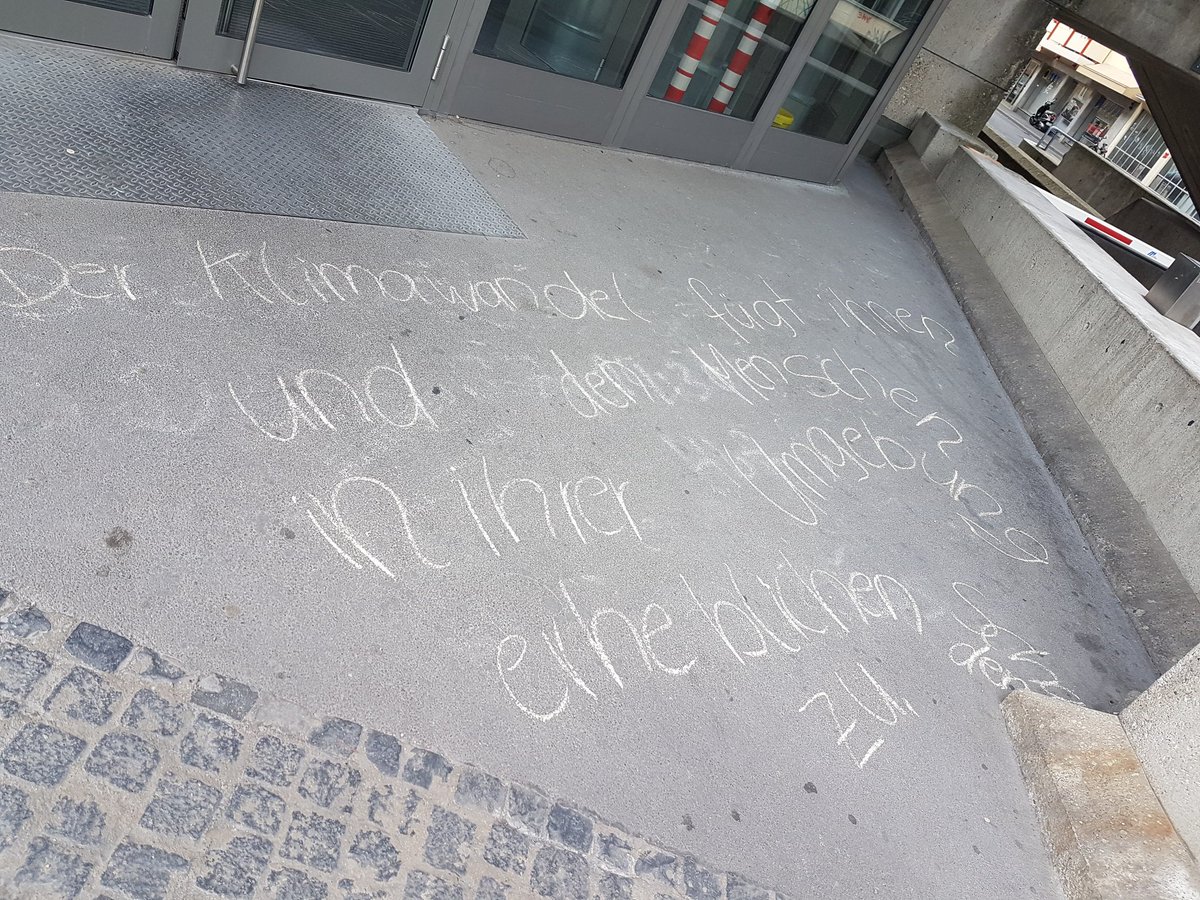 Der Klimawandel fügt ihnen
und dem Menschen
in ihrer Umgebung
erheblichen
zu.